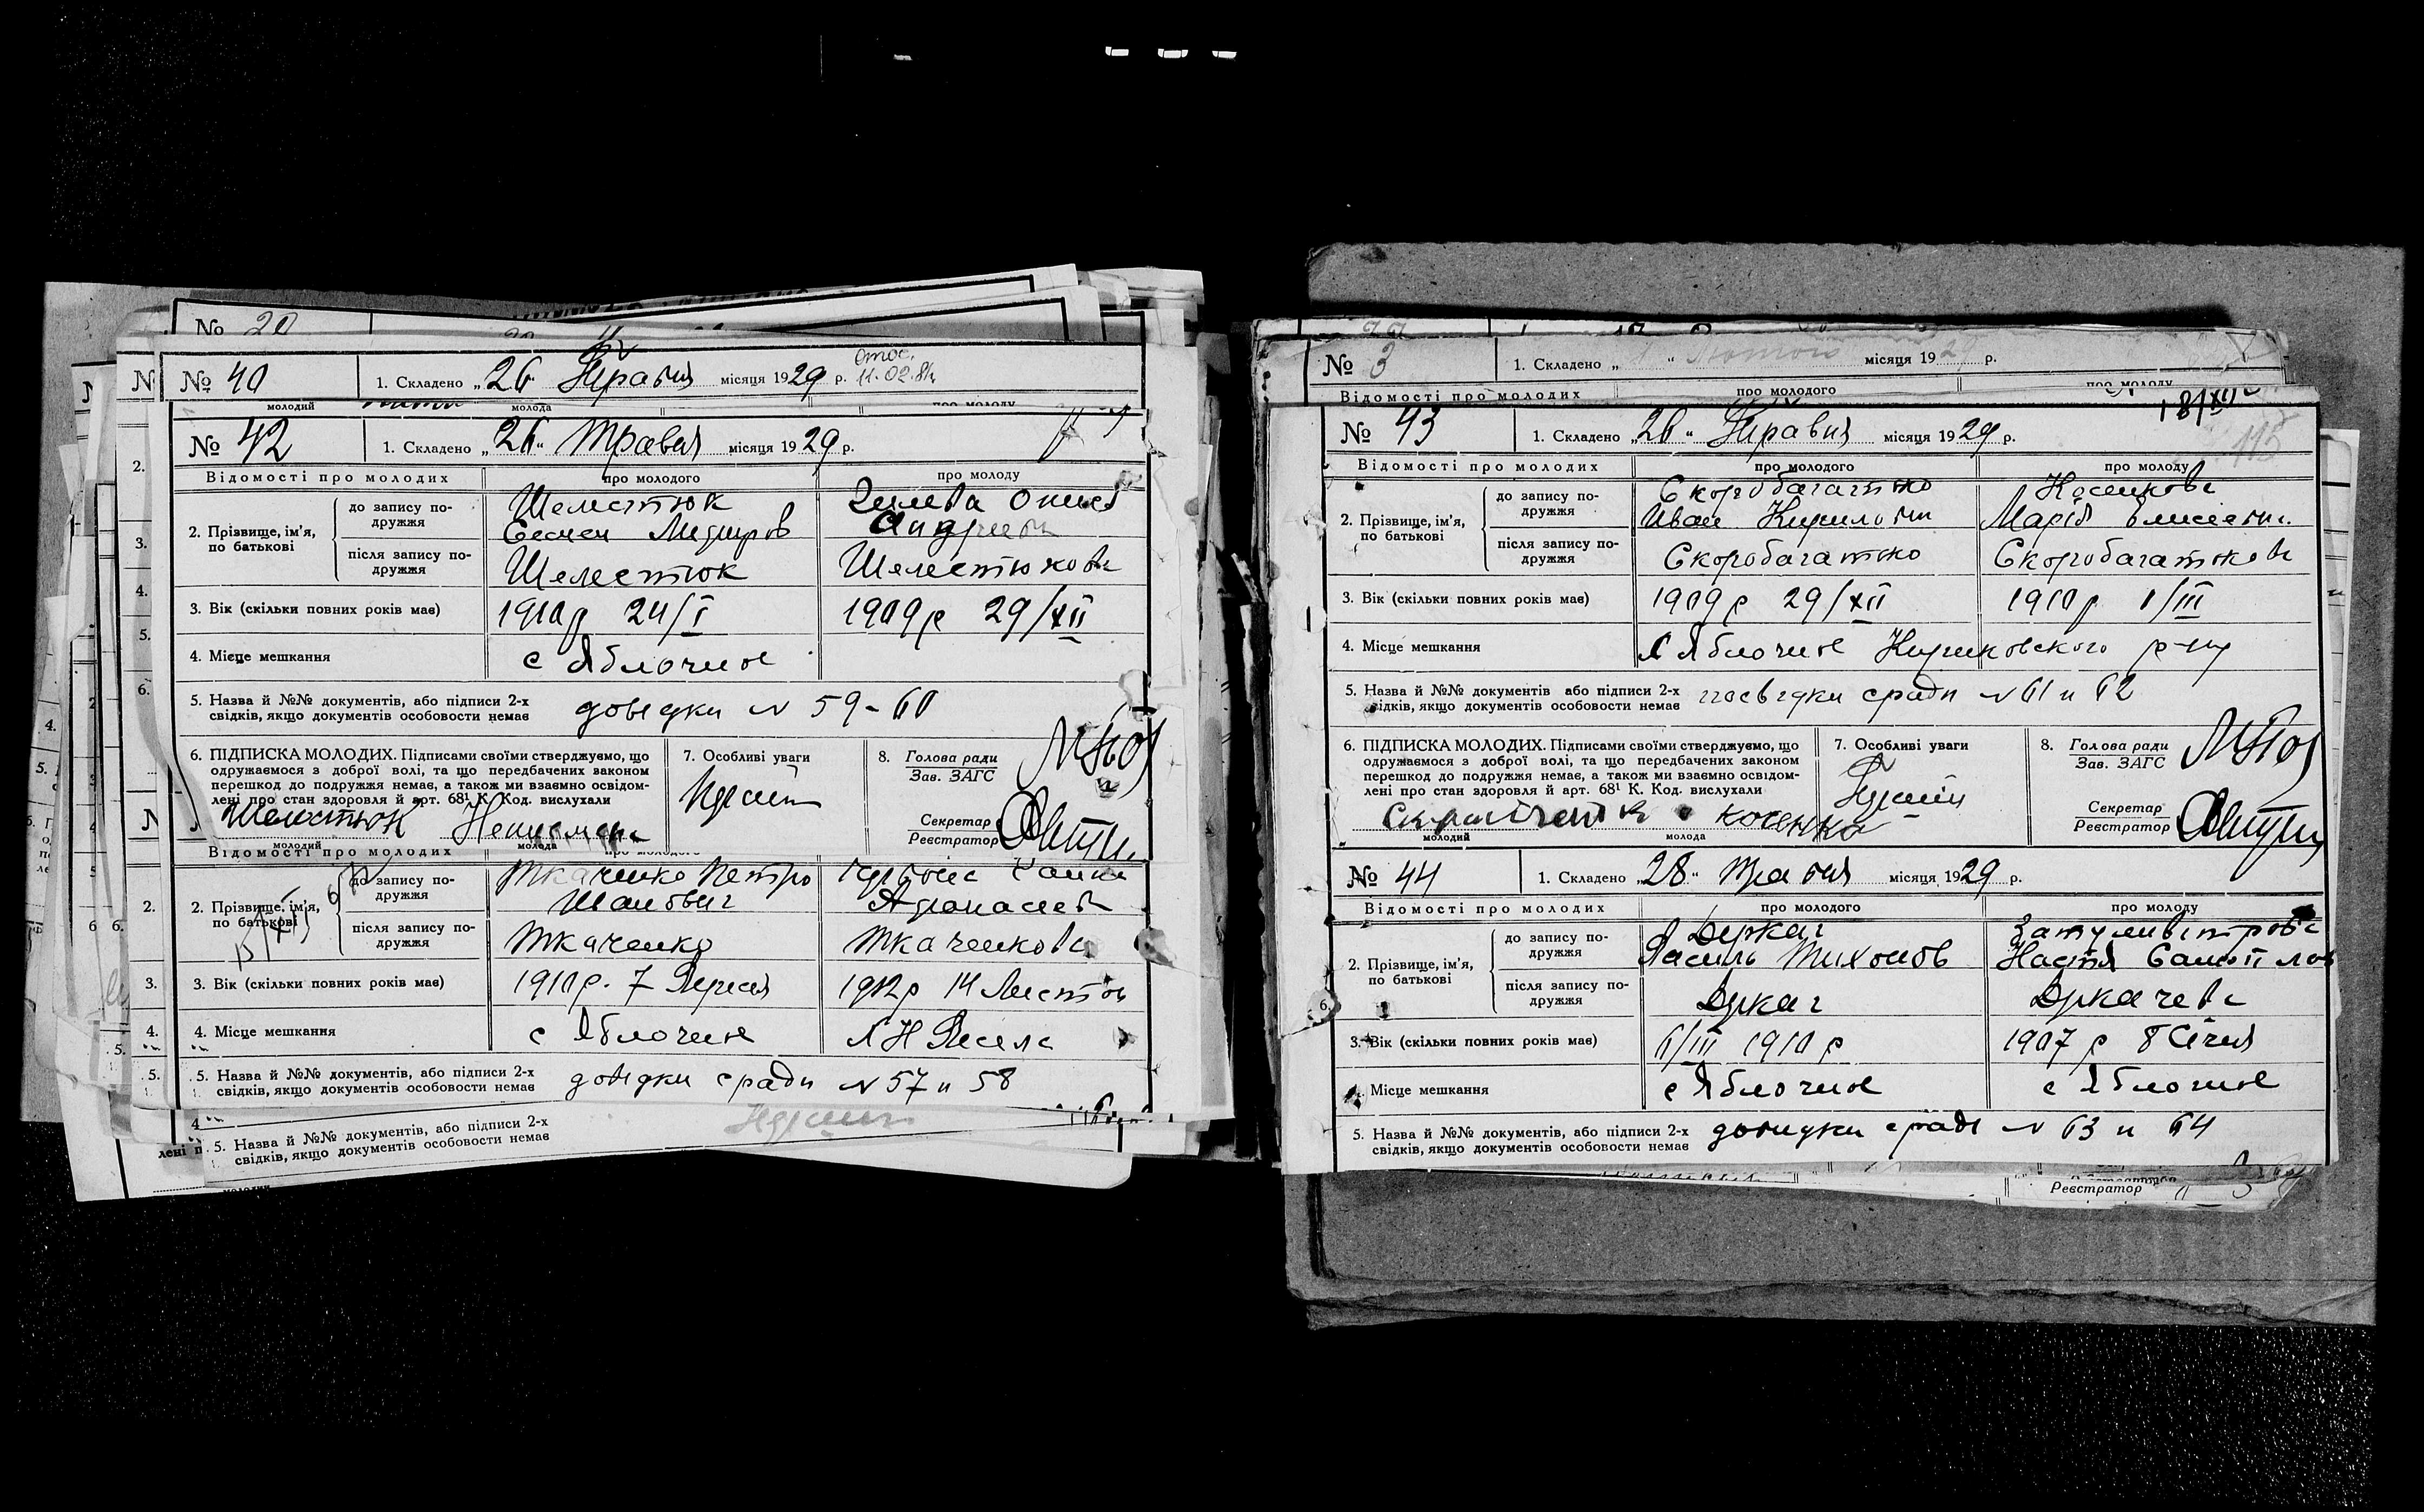 № 20
№ 40
1. Складено „26" Травня місяця 1929 р.
11.02.84
молодий молода про молоду
№ 42
1. Складено „26" Травня місяця 1929 р.
Відомості про молодих
про молодого
про молоду
2. Прізвище, ім'я, по батькові
до запису по-
дружжя
Шелестюк
Семен
після запису по-
дружжя
Шелестюк
Шелестюкова
3. Вік (скільки повних років має)
1910 р 24/I
1909 р 29/XII
4. Місце мешкання
с Яблочне
5. Назва й №№ документів, або підписи 2-х
свідків, якщо документів особовости немає
довідки № 59-60
6. ПІДПИСКА МОЛОДИХ. Підписами своїми стверджуємо, що
одружаємося з доброї волі, та що передбачених законом
перешкод до подружжя немає, а також ми взаємно освідом-
лені про стан здоровля й арт. 68¹ К. Код. вислухали
Шелестюк
молодий
молода
7. Особливі уваги
8. Голова ради
Зав. ЗАГС
Секретар
Реєстратор
Відомості про молодих
про молодого
2. Прізвище, ім'я,
по батькові
до запису по-
дружжя
Ткаченко Петро
Іванович
після запису по-
дружжя
Ткаченко
Ткаченкова
3. Вік (скільки повних років має)
1910 р. 7
1912 р 14 Листоп
4. Місце мешкання
с Яблочне
5. Назва й №№ документів, або підписи 2-х
свідків, якщо документів особовости немає
довідки сради № 57 и 58
5. Назва й №№ документів, або підписи 2-х
свідків, якщо документів особовости немає
№ 3
1. Складено „ " Лютого місяця 192 р.
Відомості про молодих
про молодого
про молоду
18/XII
115
№ 43
1. Складено „26" Травня місяця 1929 р.
Відомості про молодих
про молодого
про молоду
2. Прізвище, ім'я,
по батькові
до запису по-
дружжя
Скоробагатько
Иван Кирилович
Носенкова
Марія
після запису по-
дружжя
Скоробагатько
Скоробагатькова
3. Вік (скільки повних років має)
1909 р 29/XII
1910 р 1/III
4. Місце мешкання
с Яблочне Кириковского р-ну
5. Назва й №№ документів або підписи 2-х
свідків, якщо документів особовости немає
посвідки сради № 61 и 62
6. ПІДПИСКА МОЛОДИХ. Підписами своїми стверджуємо, що
одружаємося з доброї волі, та що передбачених законом
перешкод до подружжя немає, а також ми взаємно освідом-
лені про стан здоровля й арт. 68¹ К. Код. вислухали
косенка
молодий
молода
7. Особливі уваги
8. Голова ради
Зав. ЗАГС
Секретар
Реєстратор
№ 44
1. Складено „28" Травня місяця 1929 р.
Відомості про молодих
про молодого
про молоду
2. Прізвище, ім'я,
по батькові
до запису по-
дружжя
Деркач
Василь Тихонов
Настя
після запису по-
дружжя
Деркач
Деркачева
3. Вік (скільки повних років має)
6/III 1910 р
1907 р 8 Січня
4. Місце мешкання
с Яблочне
с Яблочне
5. Назва й №№ документів, або підписи 2-х
свідків, якщо документів особовости немає
довидки сради № 63 и 64
Реєстратор